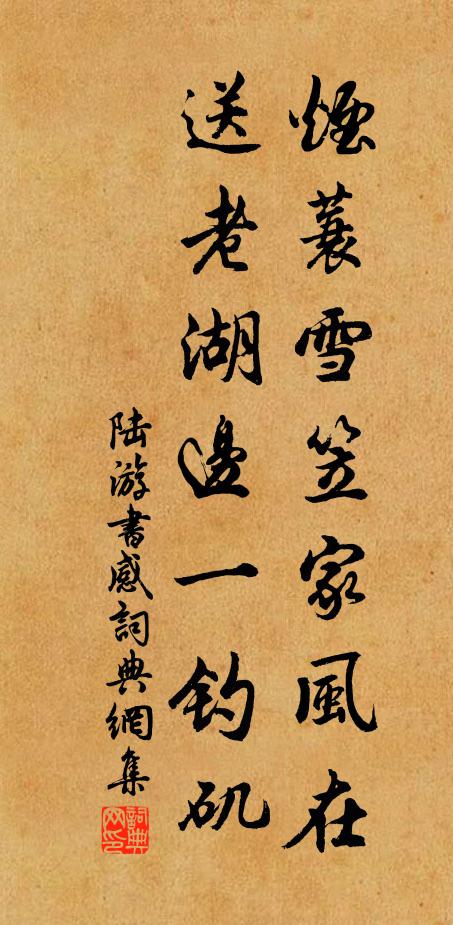 煙蓑雪笠家風在
送老湖邊一釣矶
陆游書感詞典網集
詞典网印